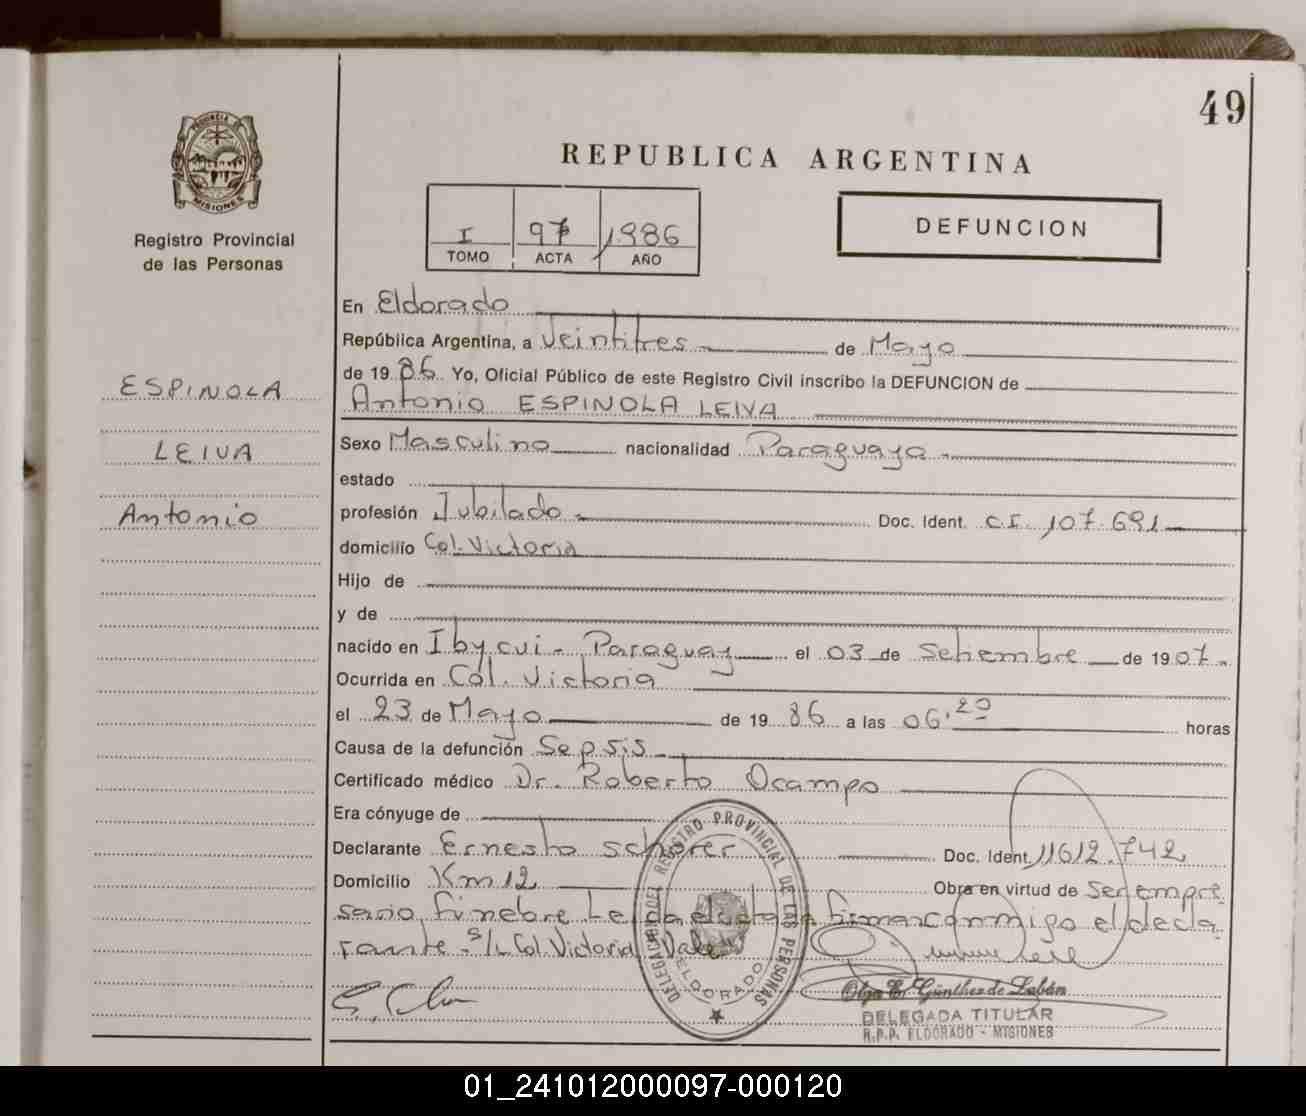 49
PROVINCIA DE
MISIONES
Registro Provincial
de las Personas
REPUBLICA ARGENTINA
I 97 1986
TOMO ACTA AÑO
DEFUNCION
ESPINOLA
LEIVA
Antonio
En Eldorado
República Argentina, a Veintitres de Mayo
de 19 86 Yo, Oficial Público de este Registro Civil inscribo la DEFUNCION de
Antonio ESPINOLA LEIVA
Sexo Masculino nacionalidad Paraguaya
estado
profesión Jubilado Doc. Ident. C.I. 107.691
domicilio Col. Victoria
Hijo de
y de
nacido en Ibycui - Paraguay el 03 de Setiembre de 1907.
Ocurrida en Col. Victoria
el 23 de Mayo de 19 86 a las 06.20 horas
Causa de la defunción Sepsis
Certificado médico Dr. Roberto Ocampo
Era cónyuge de
Declarante Ernesto Schorer Doc. Ident. 11612.742
Domicilio Km 12 Obra en virtud de Ser empre
sario fúnebre Leída el acta firma conmigo el decla
rante. S/L Col. Victoria Vale
DELEGACION DEL REGISTRO PROVINCIAL DE LAS PERSONAS
ELDORADO
Olga E. Günther de Labán
DELEGADA TITULAR
R.P.P. ELDORADO - MISIONES
01_241012000097-000120